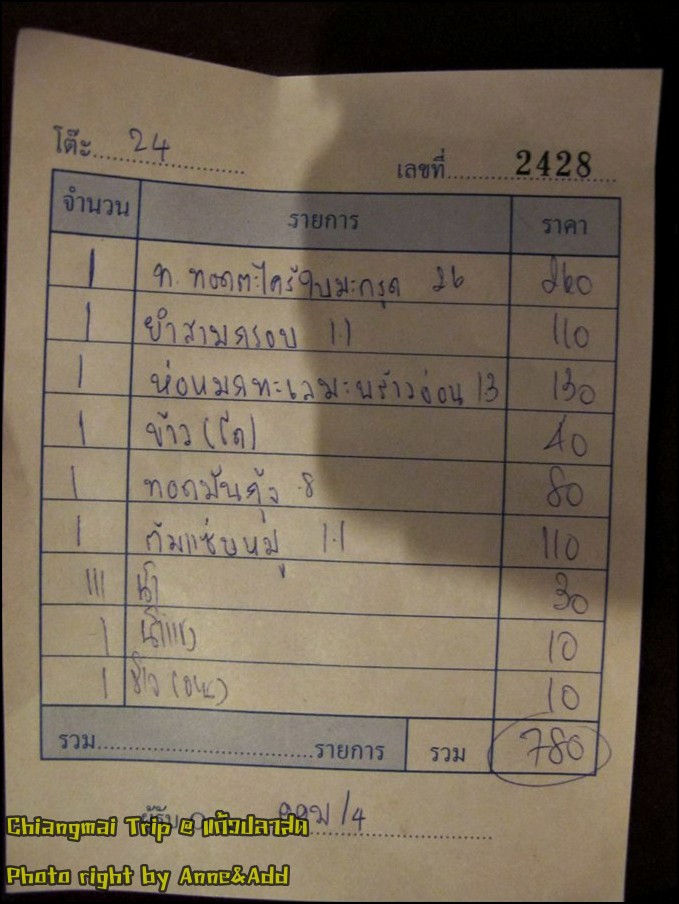 โต๊ะ 24
เลขที่ 2428
จำนวน รายการ ราคา
1 ท. ทอดตะไคร้ใบมะกรูด 26 260
1 ยำสามกรอบ 1.1 110
1 ห่อหมกทะเลมะพร้าวอ่อน 13 130
1 ข้าว (โถ) 40
1 ทอดมันกุ้ง 8 80
1 ต้มแซ่บหมู 1.1 110
III น้ำ 30
1 น้ำแข็ง 10
1 ข้าว 10
รวม รายการ รวม 780
ผู้รับ /4
Chiangmai Trip @ แก้วปลาสด
Photo right by Anne&Add